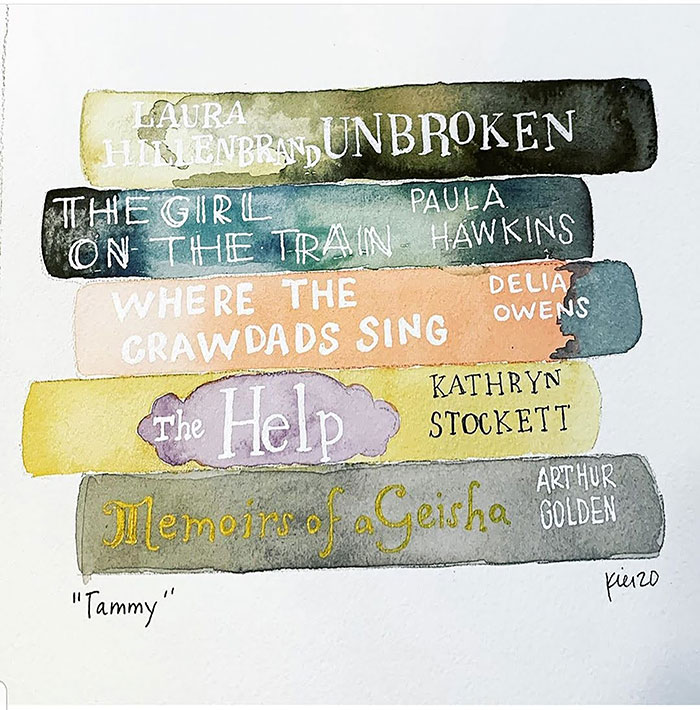 LAURA
HILLENBRAND UNBROKEN
THE GIRL
ON THE TRAIN
PAULA
HAWKINS
WHERE THE
CRAWDADS SING
DELIA
OWENS
The Help
KATHRYN
STOCKETT
Memoirs of a Geisha
ARTHUR
GOLDEN
"Tammy"